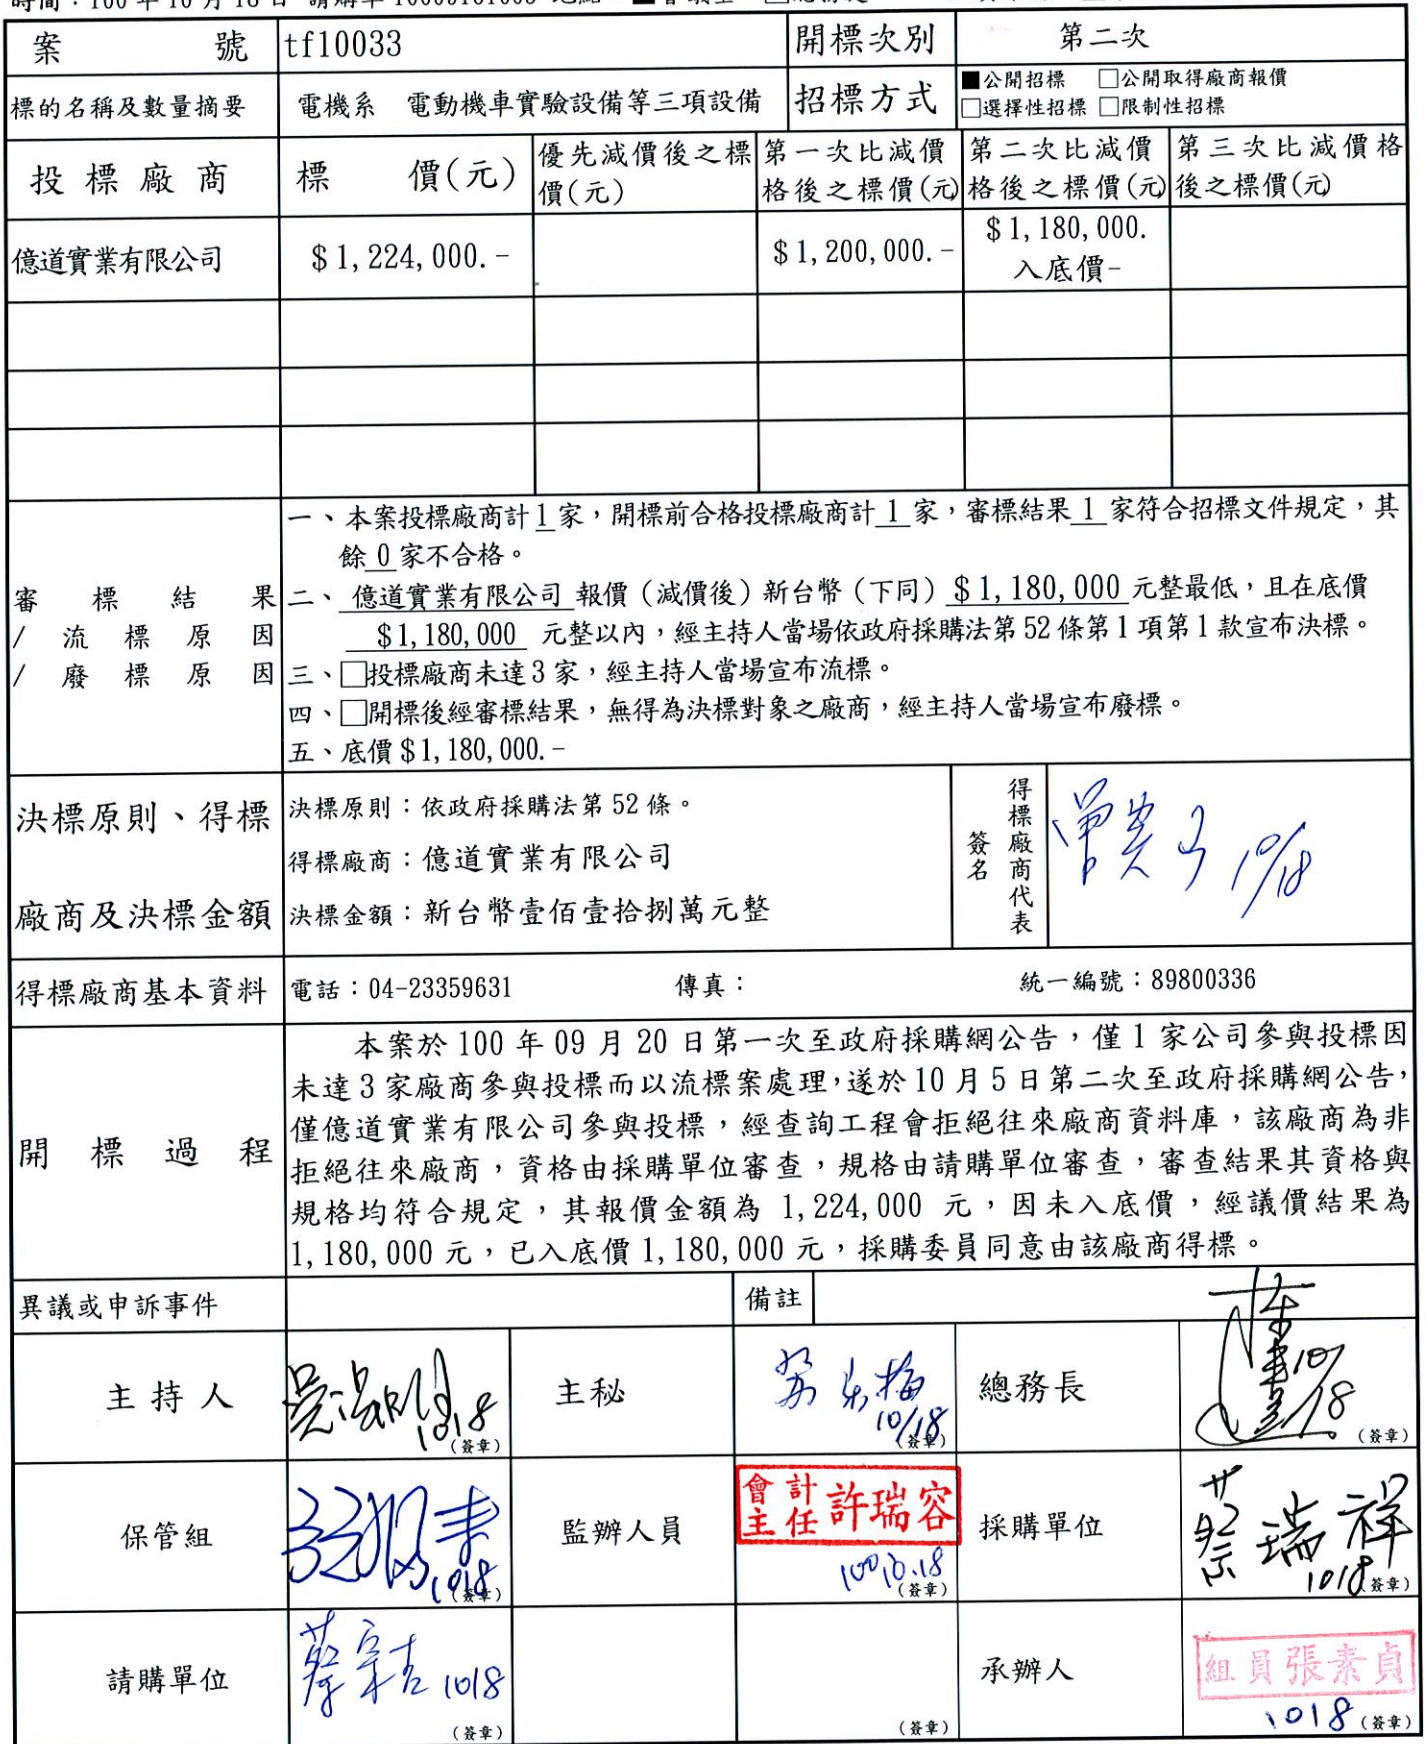 案 號 tf10033 開標次別 第二次
標的名稱及數量摘要 電機系 電動機車實驗設備等三項設備 招標方式 ■公開招標 □公開取得廠商報價
□選擇性招標 □限制性招標
投標廠商 標 價(元) 優先減價後之標價(元) 第一次比減價格後之標價(元) 第二次比減價格後之標價(元) 第三次比減價格後之標價(元)
億道實業有限公司 $1,224,000.- $1,200,000.- $1,180,000.
入底價-
審標結果
/流標原因
/廢標原因
一、本案投標廠商計1家，開標前合格投標廠商計 1 家，審標結果 1 家符合招標文件規定，其
餘 0 家不合格。
二、億道實業有限公司 報價（減價後）新台幣（下同）$1,180,000 元整最低，且在底價
$1,180,000 元整以內，經主持人當場依政府採購法第52條第1項第1款宣布決標。
三、□投標廠商未達3家，經主持人當場宣布流標。
四、□開標後經審標結果，無得為決標對象之廠商，經主持人當場宣布廢標。
五、底價$1,180,000.-
決標原則、得標
廠商及決標金額
決標原則：依政府採購法第52條。
得標廠商：億道實業有限公司
決標金額：新台幣壹佰壹拾捌萬元整
得標廠商代表
簽名
10/18
得標廠商基本資料 電話：04-23359631 傳真： 統一編號：89800336
開標過程
本案於100年09月20日第一次至政府採購網公告，僅1家公司參與投標因
未達3家廠商參與投標而以流標案處理，遂於10月5日第二次至政府採購網公告，
僅億道實業有限公司參與投標，經查詢工程會拒絕往來廠商資料庫，該廠商為非
拒絕往來廠商，資格由採購單位審查，規格由請購單位審查，審查結果其資格與
規格均符合規定，其報價金額為 1,224,000 元，因未入底價，經議價結果為
1,180,000元，已入底價1,180,000元，採購委員同意由該廠商得標。
異議或申訴事件 備註
主持人 1018 （簽章） 主秘 10/18 （簽章） 總務長 10/18 （簽章）
保管組 1018 （簽章） 監辦人員 會計主任 許瑞容 100.10.18 （簽章） 採購單位 蔡瑞祥 1018 （簽章）
請購單位 蔡宗吉 1018 （簽章） （簽章） 承辦人 組員張素貞 1018 （簽章）